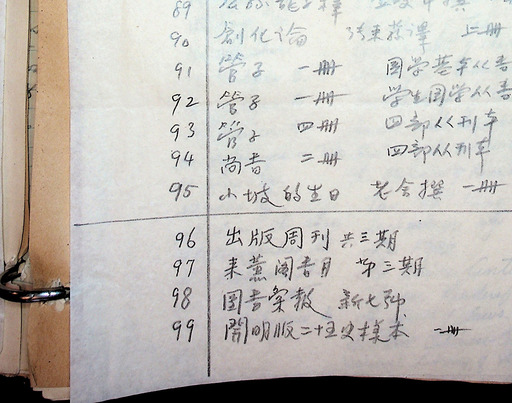 89
90 創化論 張東蓀譯 三冊
91 管子 一冊 國学基本从書
92 管子 一冊 学生国学从書
93 管子 四冊 四部从刊本
94 尚書 二冊 四部从刊本
95 小坡的生日 老舍撰 一冊
96 出版周刊 共三期
97 来薰阁書目 第三期
98 图書彙報 新七號
99 開明版二十五史樣本 一冊